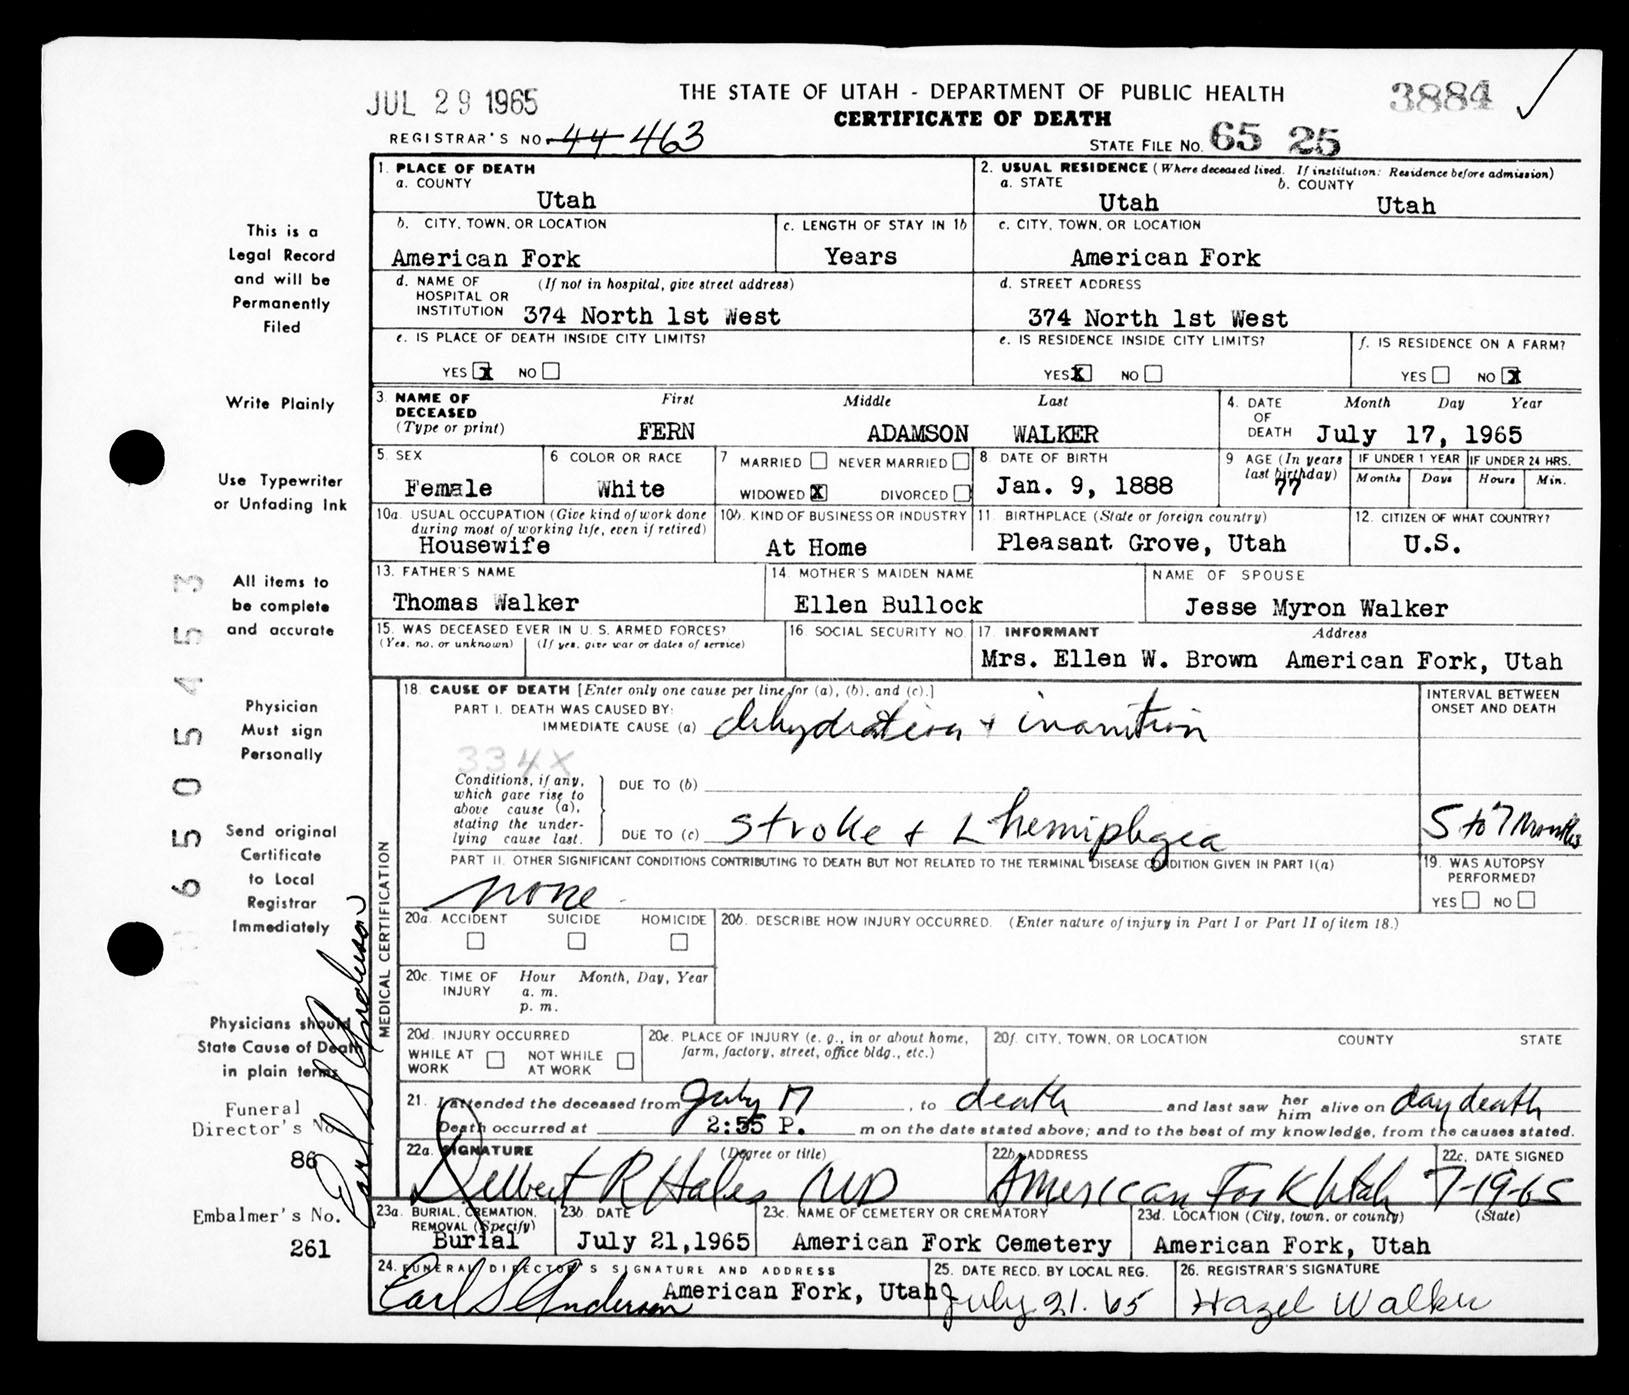 JUL 29 1965
THE STATE OF UTAH - DEPARTMENT OF PUBLIC HEALTH
3884
CERTIFICATE OF DEATH
REGISTRAR'S NO. 44 463
STATE FILE NO. 65 25
This is a
Legal Record
and will be
Permanently
Filed
Write Plainly
Use Typewriter
or Unfading Ink
All items to
be complete
and accurate
Physician
Must sign
Personally
Send original
Certificate
to Local
Registrar
Immediately
Physicians should
State Cause of Death
in plain terms
Funeral
Director's No.
86
Embalmer's No.
261
Earl S Anderson
6505453
1. PLACE OF DEATH
a. COUNTY
Utah
2. USUAL RESIDENCE (Where deceased lived. If institution: Residence before admission)
a. STATE b. COUNTY
Utah Utah
b. CITY, TOWN, OR LOCATION
American Fork
c. LENGTH OF STAY IN 1b
Years
c. CITY, TOWN, OR LOCATION
American Fork
d. NAME OF (If not in hospital, give street address)
HOSPITAL OR
INSTITUTION 374 North 1st West
d. STREET ADDRESS
374 North 1st West
e. IS PLACE OF DEATH INSIDE CITY LIMITS?
YES X NO
e. IS RESIDENCE INSIDE CITY LIMITS?
YES X NO
f. IS RESIDENCE ON A FARM?
YES NO X
3. NAME OF First Middle Last
DECEASED
(Type or print) FERN ADAMSON WALKER
4. DATE Month Day Year
OF
DEATH July 17, 1965
5. SEX
Female
6 COLOR OR RACE
White
7 MARRIED NEVER MARRIED
WIDOWED X DIVORCED
8. DATE OF BIRTH
Jan. 9, 1888
9 AGE (In years
last birthday)
77
IF UNDER 1 YEAR IF UNDER 24 HRS.
Months Days Hours Min.
10a. USUAL OCCUPATION (Give kind of work done
during most of working life, even if retired)
Housewife
10b. KIND OF BUSINESS OR INDUSTRY
At Home
11. BIRTHPLACE (State or foreign country)
Pleasant Grove, Utah
12. CITIZEN OF WHAT COUNTRY?
U.S.
13. FATHER'S NAME
Thomas Walker
14. MOTHER'S MAIDEN NAME
Ellen Bullock
NAME OF SPOUSE
Jesse Myron Walker
15. WAS DECEASED EVER IN U. S. ARMED FORCES?
(Yes, no, or unknown) (If yes, give war or dates of service)
16. SOCIAL SECURITY NO.
17. INFORMANT Address
Mrs. Ellen W. Brown American Fork, Utah
MEDICAL CERTIFICATION
18. CAUSE OF DEATH [Enter only one cause per line for (a), (b), and (c).]
PART I. DEATH WAS CAUSED BY:
IMMEDIATE CAUSE (a) dehydration + inanition
334X
Conditions, if any,
which gave rise to
above cause (a),
stating the under-
lying cause last.
DUE TO (b)
DUE TO (c) stroke + L hemiplegia
INTERVAL BETWEEN
ONSET AND DEATH
5 to 7 Months
PART II. OTHER SIGNIFICANT CONDITIONS CONTRIBUTING TO DEATH BUT NOT RELATED TO THE TERMINAL DISEASE CONDITION GIVEN IN PART I(a)
none
19. WAS AUTOPSY
PERFORMED?
YES NO
20a. ACCIDENT SUICIDE HOMICIDE
20b. DESCRIBE HOW INJURY OCCURRED. (Enter nature of injury in Part I or Part II of item 18.)
20c. TIME OF Hour Month, Day, Year
INJURY a. m.
p. m.
20d. INJURY OCCURRED
WHILE AT NOT WHILE
WORK AT WORK
20e. PLACE OF INJURY (e. g., in or about home,
farm, factory, street, office bldg., etc.)
20f. CITY, TOWN, OR LOCATION COUNTY STATE
21. I attended the deceased from July 17, to death and last saw her him alive on day death
Death occurred at 2:55 P. m on the date stated above; and to the best of my knowledge, from the causes stated.
22a. SIGNATURE (Degree or title)
Delbert R Hales MD
22b. ADDRESS
American Fork Utah
22c. DATE SIGNED
7-19-65
23a. BURIAL, CREMATION,
REMOVAL (Specify)
Burial
23b. DATE
July 21, 1965
23c. NAME OF CEMETERY OR CREMATORY
American Fork Cemetery
23d. LOCATION (City, town, or county) (State)
American Fork, Utah
24. FUNERAL DIRECTOR'S SIGNATURE AND ADDRESS
Earl S Anderson American Fork, Utah
25. DATE RECD. BY LOCAL REG.
July 21. 65
26. REGISTRAR'S SIGNATURE
Hazel Walker